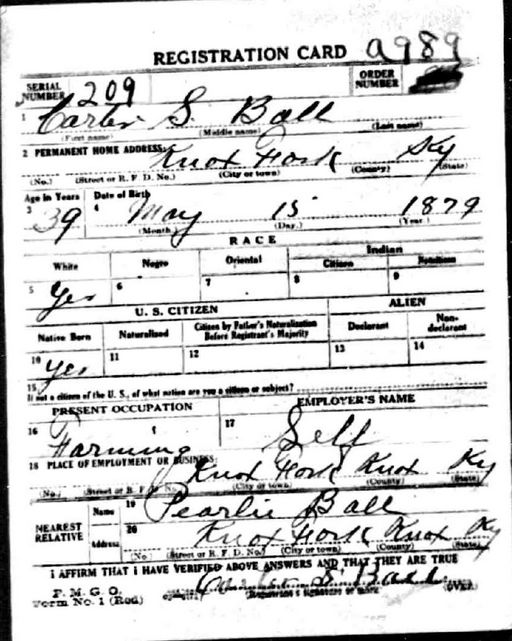 REGISTRATION CARD a989
SERIAL NUMBER 209 ORDER NUMBER
1 Carter S. Ball
(First name) (Middle name) (Last name)
2 PERMANENT HOME ADDRESS: Knox Fork Ky
(No.) (Street or R. F. D. No.) (City or town) (County) (State)
Age in Years Date of Birth
3 39 4 May 15 1879
(Month.) (Day.) (Year.)
RACE
White Negro Oriental Indian
Citizen
5 Yes 6 7 8 9
U. S. CITIZEN ALIEN
Native Born Naturalized Citizen by Father's Naturalization Before Registrant's Majority Declarant Non-declarant
10 Yes 11 12 13 14
15 If not a citizen of the U. S., of what nation are you a citizen or subject?
PRESENT OCCUPATION EMPLOYER'S NAME
16 Farming 17 Self
18 PLACE OF EMPLOYMENT OR BUSINESS: Knox Fork Knox Ky
(No.) (Street or R. F. D. No.) (City or town) (County) (State)
NEAREST RELATIVE Name 19 Pearlie Ball
Address 20 Knox Fork Knox Ky
(No.) (Street or R. F. D. No.) (City or town) (County) (State)
I AFFIRM THAT I HAVE VERIFIED ABOVE ANSWERS AND THAT THEY ARE TRUE
P. M. G. O.
Form No. 1 (Red) S. Ball
(Registrant's signature or mark) (OVER)